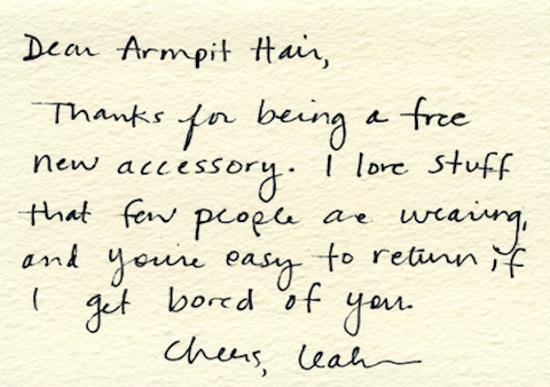 Dear Armpit Hair,
Thanks for being a free
new accessory. I love stuff
that few people are wearing,
and you're easy to return if
I get bored of you.
Cheers, Leah